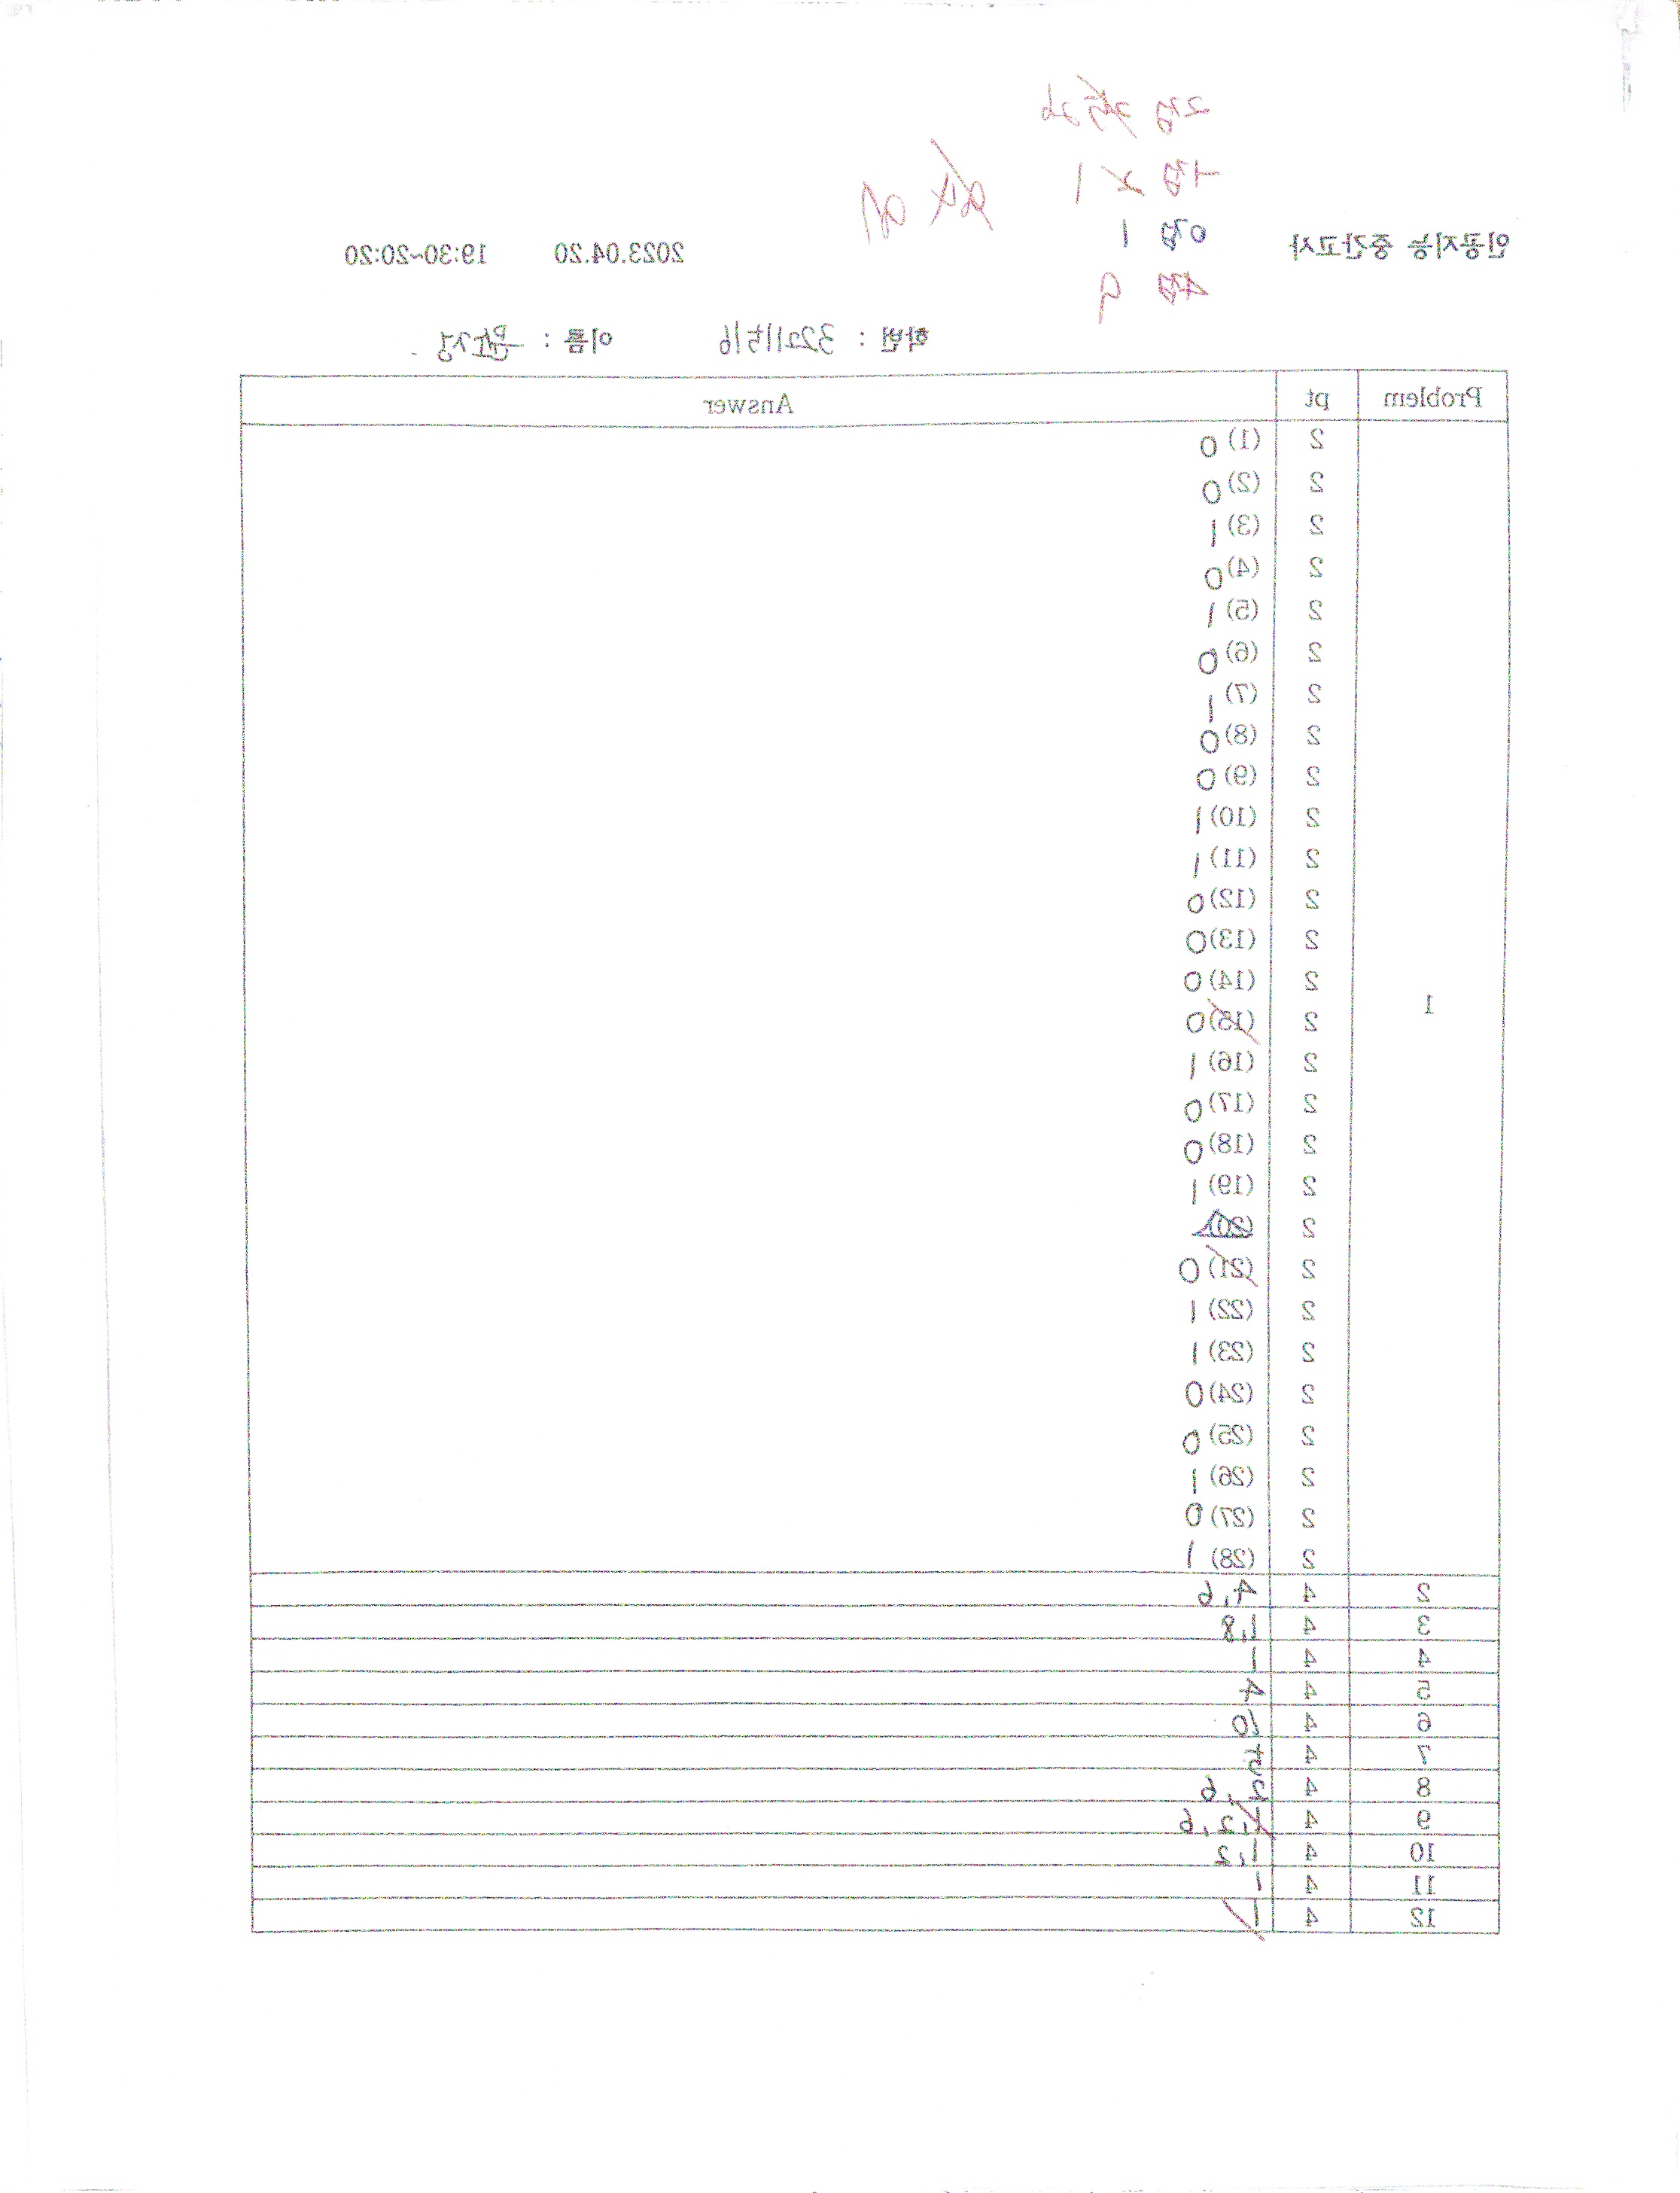 2점 26
1점 1
0점 1
4점 9
인공지능 중간고사 2023.04.20 19:30~20:20
학번 : 32211516 이름 :
Problem pt Answer
1
2 (1) 0
2 (2) 0
2 (3) 1
2 (4) 0
2 (5) 1
2 (6) 0
2 (7) 1
2 (8) 0
2 (9) 0
2 (10) 1
2 (11) 1
2 (12) 0
2 (13) 0
2 (14) 0
2 (15) 0
2 (16) 1
2 (17) 0
2 (18) 0
2 (19) 1
2 (20)
2 (21) 0
2 (22) 1
2 (23) 1
2 (24) 0
2 (25) 0
2 (26) 1
2 (27) 0
2 (28) 1
2 4 4,6
3 4 1,8
4 4 1
5 4 4
6 4 10
7 4 5
8 4 2,6
9 4 1,2,6
10 4 1,2
11 4 1
12 4 1